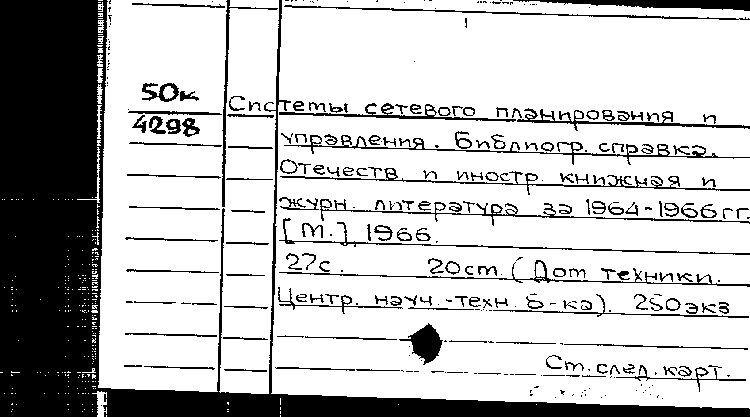 50к
4298
Системы сетевого планирования и
управления. Библиогр. справка.
Отечеств. и иностр. книжная и
журн. литература за 1964-1966 гг.
[М.], 1966.
27с. 20см. (Дом техники.
Центр. науч.-техн. б-ка). 250 экз
См. след. карт.